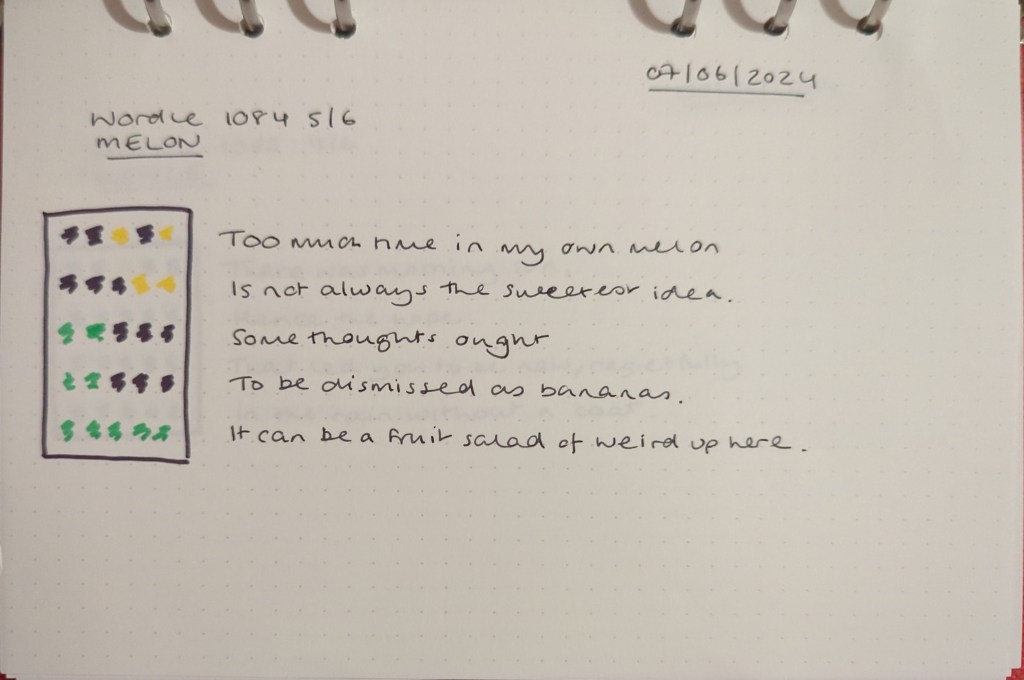 07/06/2024
Wordle 1084 5/6
MELON
Too much time in my own melon
Is not always the sweetest idea.
Some thoughts ought
To be dismissed as bananas.
It can be a fruit salad of weird up here.